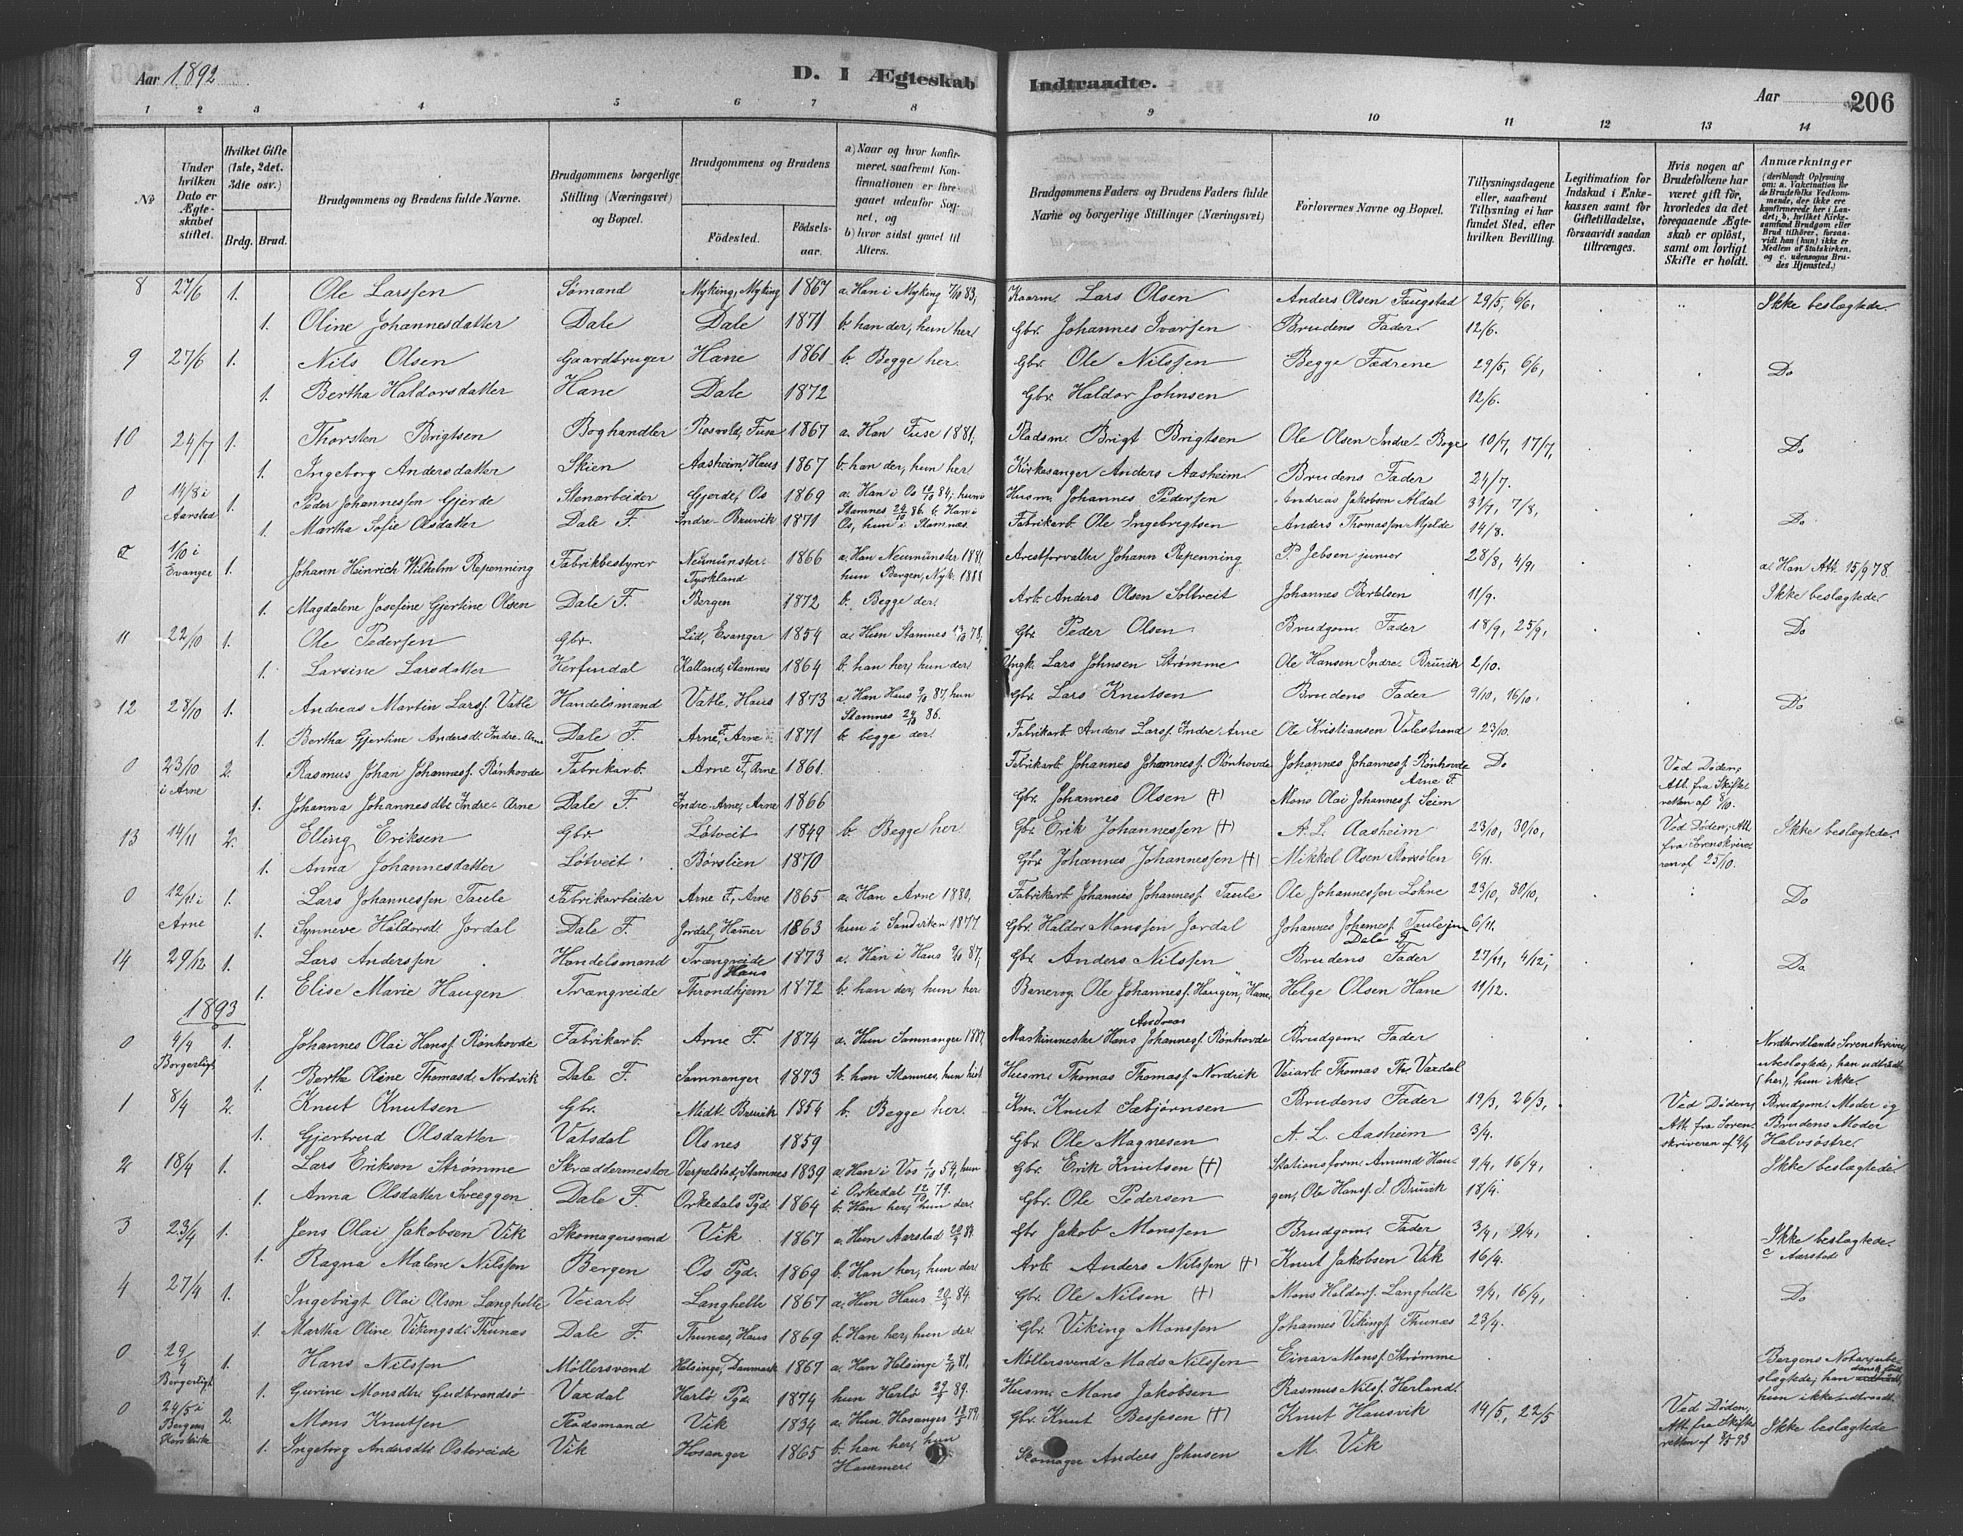 Aar 1892
D. I Ægteskab Indtraadte.
Aar 206
1 2 3 4 5 6 7 8 9 10 11 12 13 14
No
Under hvilken Dato er Ægteskabet stiftet.
Hvilket Gifte (1ste, 2det, 3die osv.)
Brdg. Brud.
Brudgommens og Brudens fulde Navne.
Brudgommens borgerlige Stilling (Næringsvei) og Bopæl.
Brudgommens og Brudens
Födested. Födselsaar.
a) Naar og hvor konfirmeret, saafremt Konfirmationen er foregaaet udenfor Sognet, og
b) hvor sidst gaaet til Alters.
Brudgommens Faders og Brudens Faders fulde Navne og borgerlige Stillinger (Næringsvei)
Forlovernes Navne og Bopæl.
Tillysningsdagene eller, saafremt Tillysning ei har fundet Sted, efter hvilken Bevilling.
Legitimation for Indskud i Enkekassen samt for Giftetilladelse, forsaavidt saadan tiltrænges.
Hvis nogen af Brudefolkene har været gift før, hvorledes da det foregaaende Ægteskab er oplöst, samt om lovligt Skifte er holdt.
Anmærkninger (deriblandt Oplysning om: a. Vakcination for de Brudefolks Vedkommende, der ikke ere konfirmerede her i Landet; b. hvilket Kirkesamfund Brudgom eller Brud tilhörer, forsaavidt han (hun) ikke er Medlem af Statskirken, og c. udensogns Brudes Hjemsted.)
8 27/6 1. Ole Larssen Sømand Myking, Myking 1867 a. Han i Myking 7/10 83, Kaarm. Lars Olsen Anders Olsen Fangstad 29/5, 6/6, Ikke beslægtede.
1. Oline Johannesdatter Dale Dale 1871 b. han der, hun her Gbr. Johannes Ivarsen Brudens Fader. 12/6.
9 27/6 1. Nils Olsen Gaardbruger Hane 1861 b. Begge her. Gbr. Ole Nilssen Begge Fædrene 29/5, 6/6, Do
1. Bertha Haldorsdatter Hane Dale 1872 Gbr. Haldor Johnsen 12/6.
10 24/7 1. Thorsten Brigtsen Boghandler Rosvold, Fuse 1867 a. Han Fuse 1881, Pladsm. Brigt Brigtsen Ole Olsen Indre-Boge 10/7, 17/7, Do
1. Ingeborg Andersdatter Skien Aasheim, Haus 1867 b. han der, hun her Kirkesanger Anders Aasheim. Brudens Fader 24/7.
0 14/8 i Aarstad 1. Peder Johannessen Gjerde Stenarbeider Gjerde, Os 1869 a. Han i Os 12/10 84, hun i Husm. Johannes Pedersen Andreas Jakobsen Aldal 31/7, 7/8, Do
1. Martha Sofie Olsdatter Dale F. Indre-Bruvik 1871 Stamnes 24/10 86 b. Han i Os, hun i Stamnæs. Fabrikarb. Ole Ingebrigtsen Anders Thomassen Mjelde 14/8.
1/10 i Evanger 1. Johann Heinrich Wilhelm Repenning Fabrikbestyrer Neumünster Tyskland 1866 a. Han Neumünster 1881 hun Bergen, Nyk. 1888 Arestforvalter Johann Repenning P. Jebsen junior 28/8, 4/9, a. Han Att. 15/9 78.
1. Magdalene Josefine Gjertine Olsen Dale F. Bergen 1872 b. Begge der. Arb. Anders Olsen Soltveit Johannes Bertelsen 11/9. Ikke beslægtede.
11 22/10 1. Ole Pedersen Gbr. Lid, Evanger 1854 a. Hun Stamnes 13/10 78, Gbr. Peder Olsen Brudgom. Fader 18/9, 25/9, Do
1. Larsine Larsdatter Herfindal Kalland, Stamnes 1864 b. han her, hun der Ungk. Lars Johnsen Strømme Ole Hansen Indre Bruvik 2/10.
12 28/10 1. Andreas Martin Larss. Vatle Handelsmand Vatle, Haus 1873 a. Han Haus 9/10 87, hun Stamnes 24/10 86. Gbr. Lars Knutsen Brudens Fader 9/10, 16/10, Do
1. Bertha Gjertine Andersdt. Indre-Arne Dale F. Arne F, Arne 1871 b. begge der. Fabrikarb Anders Larsf. Indre Arne Ole Kristiansen Valestrand 23/10.
0 23/10 i Arne 2. Rasmus Johan Johannesf. Rönhovde Fabrikarb. Arne F, Arne 1861. Fabrikarb Johannes Johannesf. Rönhovde Johannes Johannesf. Rönhovde Arne F. Do Ved Døden, Att. fra Skifteretten af 8/10.
1. Johanna Johannesdtr Indre-Arne Dale F. Indre-Arne, Arne 1866 Gbr. Johannes Olsen (+) Mons Olai Johannesf. Seim
13 14/11 2. Elling Eriksen Gbr. Løtveit 1849 b. Begge her Gbr. Erik Johannessen (+) A. L. Aasheim 23/10, 30/10, Ved Døden, Att. fra Sorenskriveren af 25/10. Ikke beslægtede.
1. Anna Johannesdatter Løtveit Børslien 1870 Gbr. Johannes Johannessen (+) Mikkel Olsen Storsølen 6/11.
0 12/11 i Arne 1. Lars Johannessen Taule Fabrikarbeider Arne F, Arne 1865 a. Han Arne 1880, Fabrikarb. Johannes Johannesf. Taule Ole Johannessen Lohne 23/10, 30/10, Do
1. Synneve Haldorsdt Jordal Dale F. Jordal, Hamer 1863 hun i Sandviken 1877 Gbr. Haldor Monssen Jordal Johannes Johannesf. Taulejun Dale F. 6/11.
14 29/12 1. Lars Anderssen Handelsmand Trængreide Haus 1873 a. Han i Haus 9/10 87, Gbr. Anders Nilssen Brudens Fader 27/11, 4/12, Do
1. Elise Marie Haugen Trængreide Throndhjem 1872 b. han der, hun her Banevog. Ole Johannesf. Haugen, Hane Helge Olsen Hane 11/12.
1893
0 4/4 Borgerligt 1. Johannes Olai Hansf. Rönhovde Fabrikarb. Arne F. 1874 a. Hun Samnanger 1887 Maskinmester Hans Andreas Johannesf. Rönhovde Brudgom. Fader Nordhordlands Sorenskriveri Ubeslægtede, han udtraadt (her), hun ikke.
1. Berthe Oline Thomasdt. Nordvik Dale F. Samnanger 1873 b. han Stamnes, hun hist Husm. Thomas Thomasf. Nordvik Veiarb Thomas Th. Vaxdal
1 8/4 2. Knut Knutsen Gbr. Midt. Bruvik 1854 b. Begge her. Knut Sæbjørnsen Brudens Fader 19/3, 26/3, Ved Døden, Att. fra Sorenskriveren af 9/4 Brudgom. Moder og Brudens Moder Halvsøstre.
1. Gjertrud Olsdatter Vatsdal Olsnes 1859 Gbr. Ole Magnesen A. L. Aasheim 3/4.
2 18/4 1. Lars Eriksen Strømme Skræddermester Verpelstad, Stamnes 1839 a. Han i Vos 1/10 54, hun i Orkedal 12/10 79. Gbr. Erik Knutsen (+) Stationsform. Amund Haugen, Ole Hansf. I. Bruvik 9/4, 16/4, 18/4. Ikke beslægtede
1. Anna Olsdatter Sveeggen Dale F. Orkedals Pgd. 1864 b. Han her, hun der. Gbr. Ole Pedersen
3 23/4 1. Jens Olai Jakobsen Vik Skomagersvend Vik 1867 a. Hun Aarstad Gbr Jakob Monssen Brudgom. Fader 3/4, 9/4, Ikke beslægtede. c Aarstad
1. Ragna Malene Nilssen Bergen Os Pgd. 1869 b. Han her, hun der Arb. Anders Nilssen (+) Knut Jakobsen Vik 16/4.
4 27/4 1. Ingebrigt Olai Olson Langhelle Veiarb. Langhelle 1867 a. Hun Haus 84. Gbr. Ole Nilsen (+) Mons Haldorf. Langhelle 9/4, 16/4, Do
1. Martha Oline Vikingsdt. Thunæs Dale F. Thunæs, Haus 1869 b. Han her, hun der. Gbr. Viking Monssen Johannes Vikingf. Thunæs 23/4.
0 29/4 Borgerligt 1. Hans Nilssen Møllersvend Helsinge, Danmark 1867 a. Han Helsinge 2/10 81, Møllersvend Mads Nilssen Einar Monsf. Strømme Bergens Notarius, beslægtede; han dansk født, hun ikke indtraadt.
1. Gurine Monsdtr. Gudbrandsø Vaxdal Herlø Pgd. 1874 hun Herlø 29/9 89. Husm. Mons Jakobsen Rasmus Nilsf. Herland.
0 24/5 i Bergens Korskirke 2. Mons Knutsen Pladsmand Vik 1834 a. Hun Hosanger Gbr. Knut Bessesen (+) Knut Hausvik 14/5, 22/5 Ved Døden, Att. fra Skifteretten af 8/5 93 Ikke beslægtede
1. Ingeborg Andersdtr Ostereide Vik Hosanger 1865 b. han her, hun Hammer. Skomager Anders Johnsen M. Vik